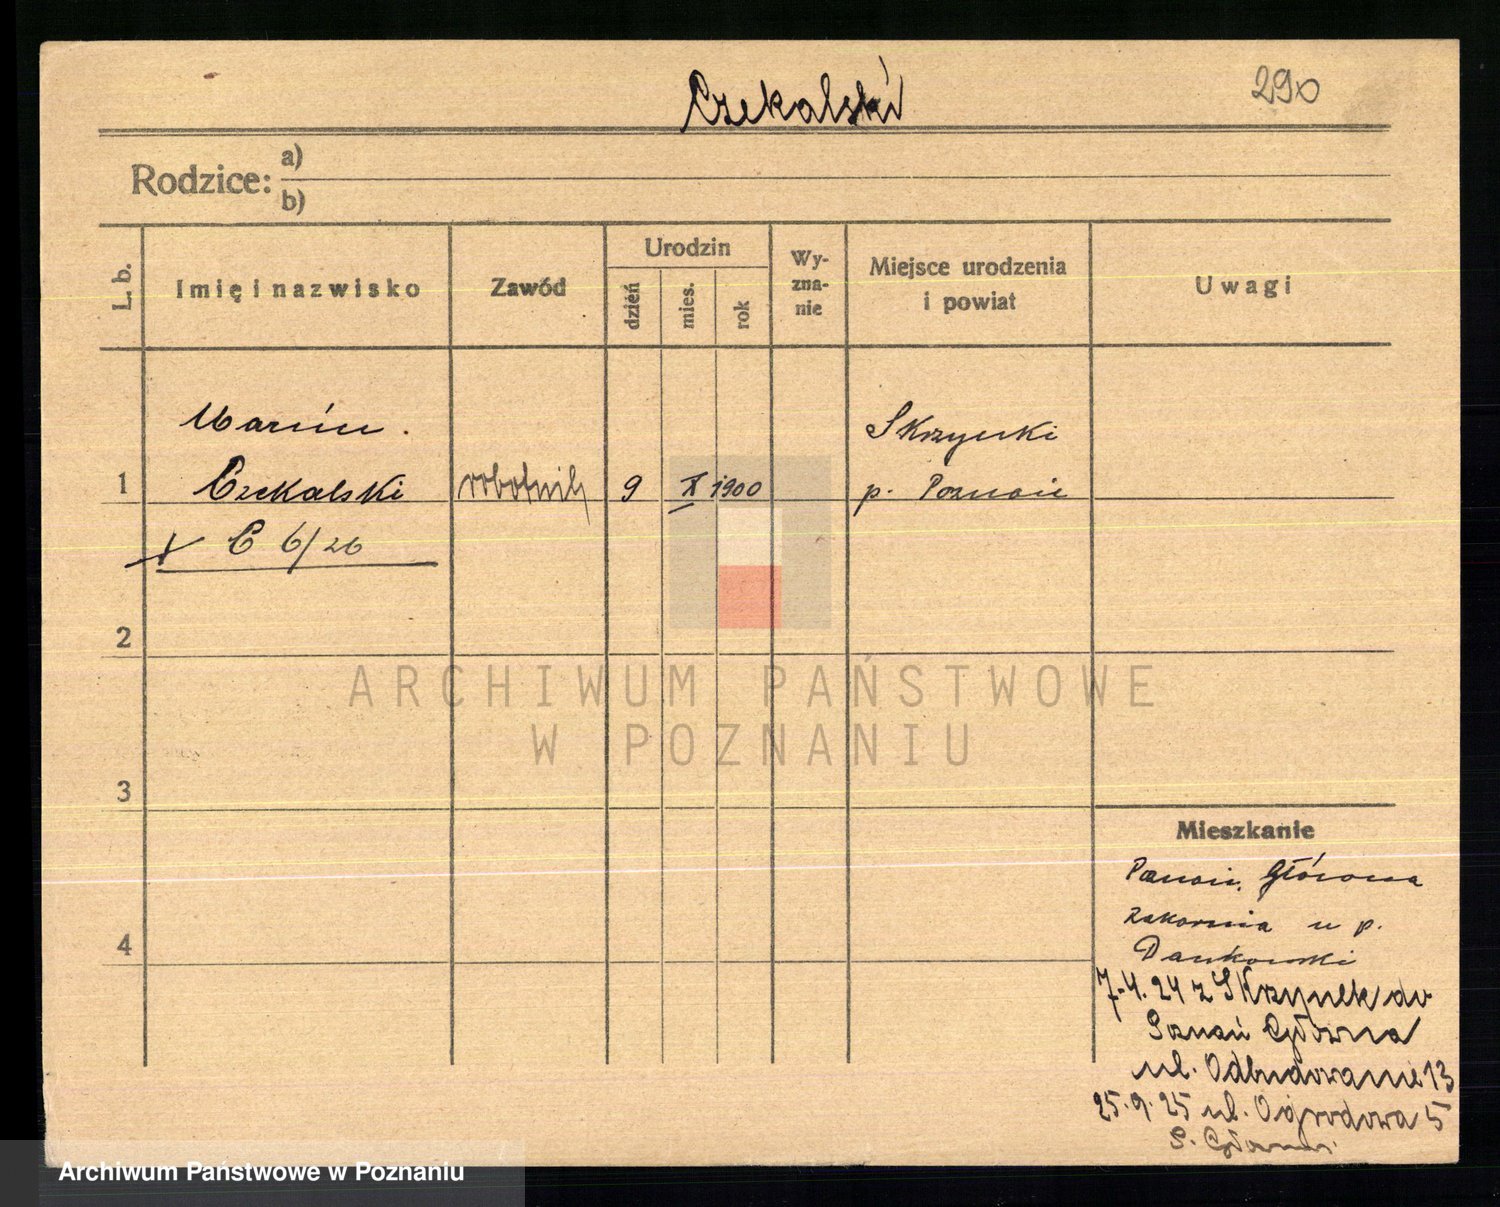 Czekalski
290
Rodzice:
a)
b)
L. b.
Imię i nazwisko
Zawód
Urodzin
dzień
mies.
rok
Wy-
zna-
nie
Miejsce urodzenia
i powiat
Uwagi
Marcin.
1 Czekalski robotnik 9 X 1900
Skrzynki
p. Poznań
C 6/26
2
3
4
ARCHIWUM PAŃSTWOWE
W POZNANIU
Mieszkanie
Poznań, Główna
u p.
Dankowski
7-4.24 z Skrzynek do
Poznań Główna
ul. Odbudowanie 13
25.9.25 ul. Ogrodowa 5
Archiwum Państwowe w Poznaniu